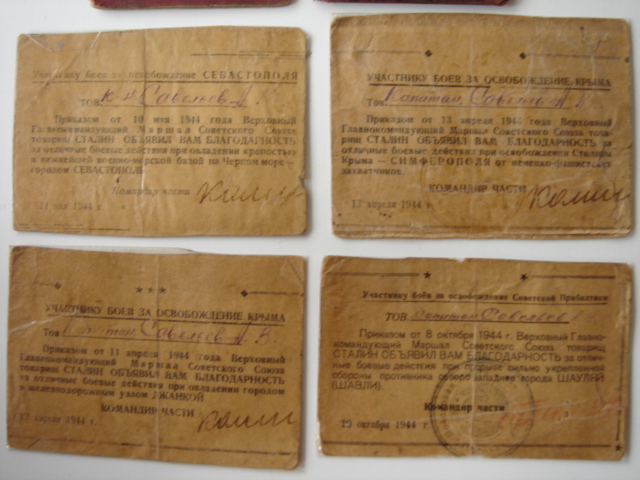 Участнику боев за освобождение СЕВАСТОПОЛЯ
ТОВ. к-н Савельев А.
Приказом от 10 мая 1944 года Верховный
Главнокомандующий Маршал Советского Союза
товарищ СТАЛИН ОБЪЯВИЛ ВАМ БЛАГОДАРНОСТЬ
за отличные боевые действия при овладении крепостью
и важнейшей военно-морской базой на Черном море—
городом СЕВАСТОПОЛЬ
Командир части
11 мая 1944 г.
УЧАСТНИКУ БОЕВ ЗА ОСВОБОЖДЕНИЕ КРЫМА
Тов. Капитан Савельев А.
Приказом от 13 апреля 1944 года Верховный
Главнокомандующий Маршал Советского Союза това-
рищ СТАЛИН ОБЪЯВИЛ ВАМ БЛАГОДАРНОСТЬ за
отличные боевые действия при освобождении Столицы
Крыма — СИМФЕРОПОЛЯ от немецко-фашистских
захватчиков.
КОМАНДИР ЧАСТИ
13 апреля 1944 г.
УЧАСТНИКУ БОЕВ ЗА ОСВОБОЖДЕНИЕ КРЫМА
Тов. Капитан Савельев А. В.
Приказом от 11 апреля 1944 года Верховный
Главнокомандующий Маршал Советского Союза
товарищ СТАЛИН ОБЪЯВИЛ ВАМ БЛАГОДАРНОСТЬ
за отличные боевые действия при овладении городом
и железнодорожным узлом ДЖАНКОЙ
КОМАНДИР ЧАСТИ
апреля 1944 г.
Участнику боев за освобождение Советской Прибалтики
ТОВ. Капитан Савельев
Приказом от 8 октября 1944 г. Верховный Главно-
командующий Маршал Советского Союза товарищ
СТАЛИН ОБЪЯВИЛ ВАМ БЛАГОДАРНОСТЬ за отлич-
ные боевые действия при прорыве сильно укрепленной
обороны противника северо западнее города ШАУЛЯЙ
(ШАВЛИ)
Командир части
октября 1944 г.